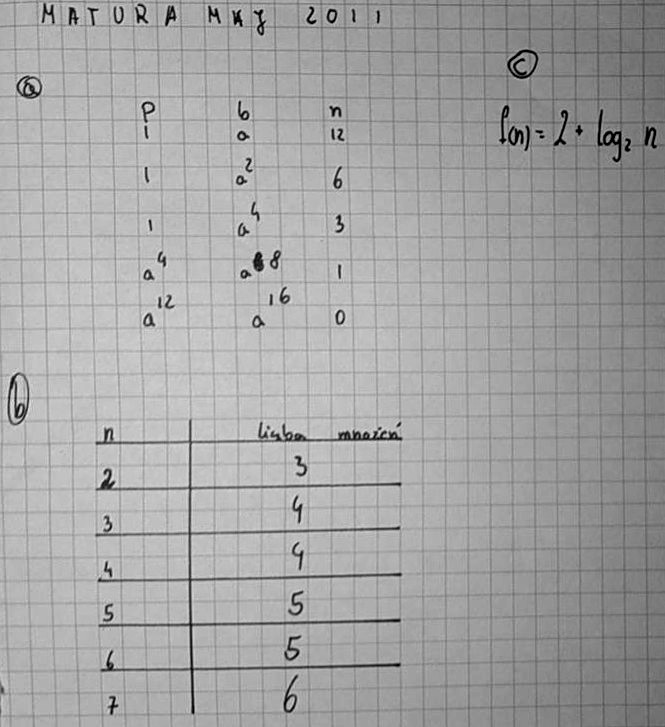 MATURA MKJ 2011
a
p b n
1 a 12
1 a² 6
1 a⁴ 3
a⁴ a⁸ 1
a¹² a¹⁶ 0
c
f(n) = 2 + log₂ n
b
n liczba mnożeń
2 3
3 4
4 4
5 5
6 5
7 6